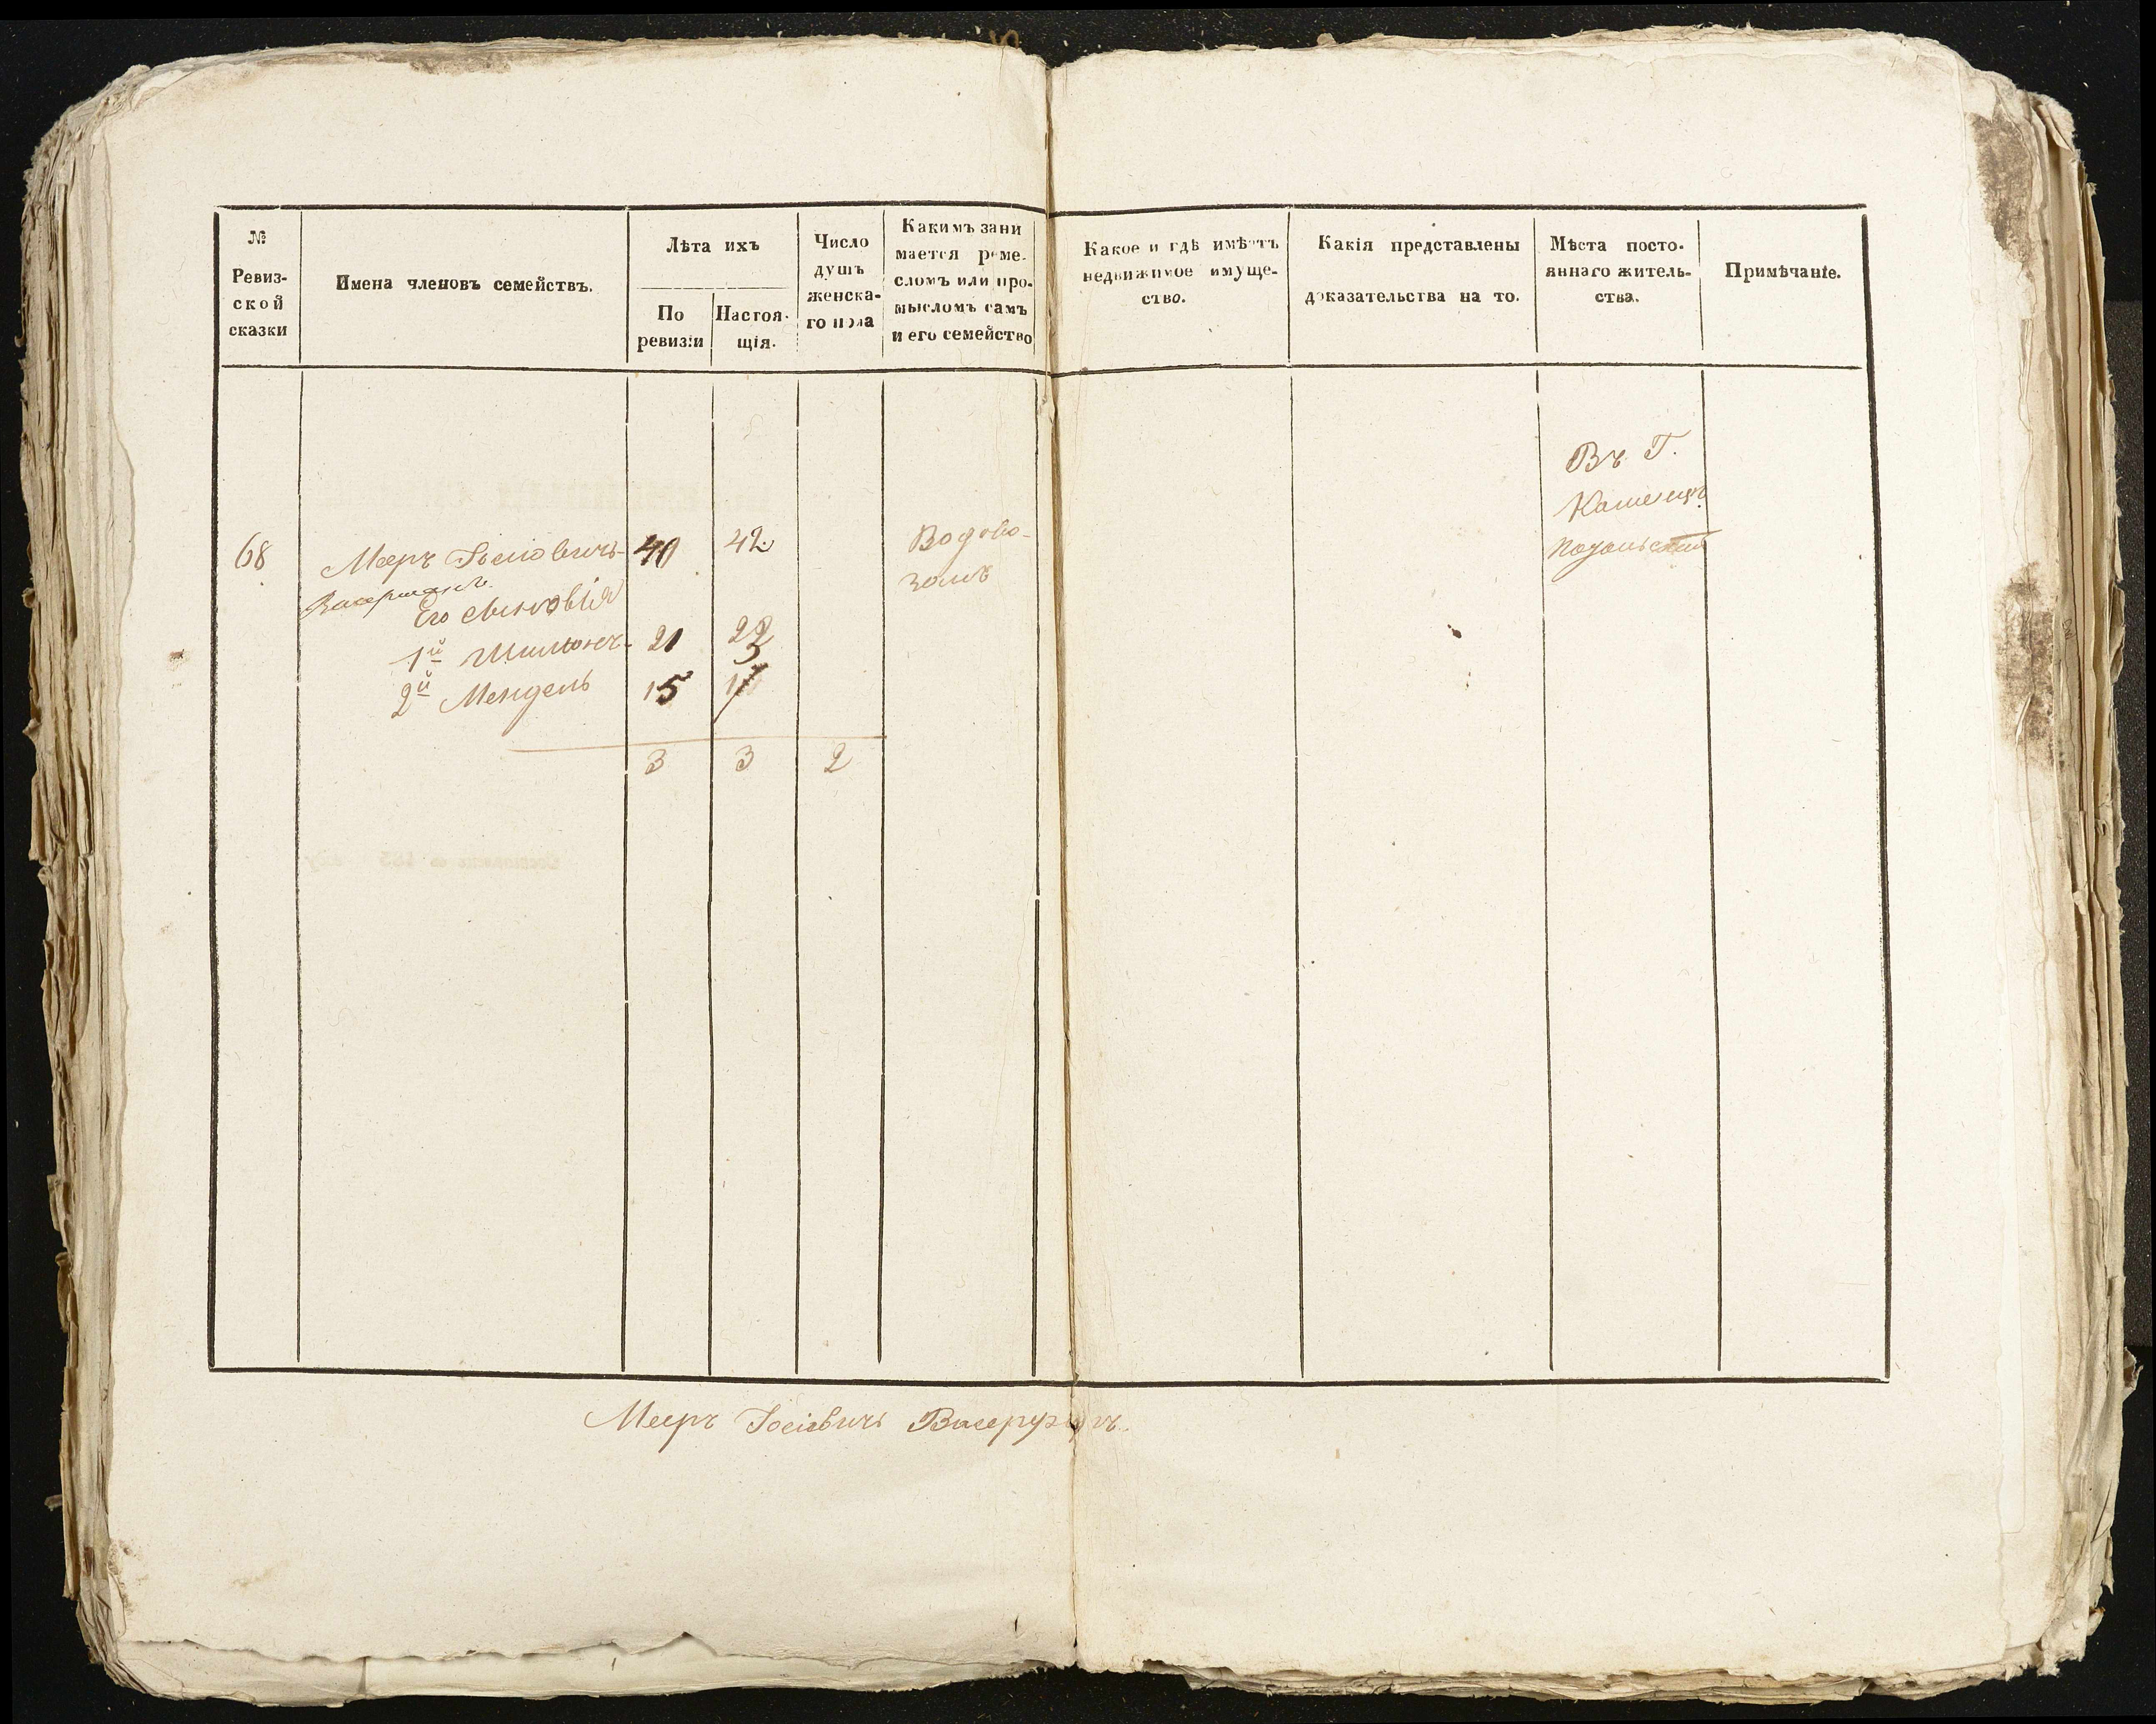 №
Ревиз-
ской
сказки
Имена членовъ семействъ.
Лѣта ихъ
По
ревизіи
Настоя-
щія.
Число
душъ
женска-
го пола
Какимъ зани
мается реме-
сломъ или про-
мысломъ самъ
и его семейство
Какое и гдѣ имѣетъ
недвижимое имуще-
ство.
Какія представлены
доказательства на то.
Мѣста посто-
яннаго житель-
ства.
Примѣчаніе.
Въ Г.
Каменцѣ
Подольскѣ
68 Мееръ Іосіовичъ 40 42 Водово-
зомъ
Васерманъ
Его сыновія
1й Шимонъ 21 23
2й Мендель 15 17
3 3 2
Мееръ Іосіовичъ